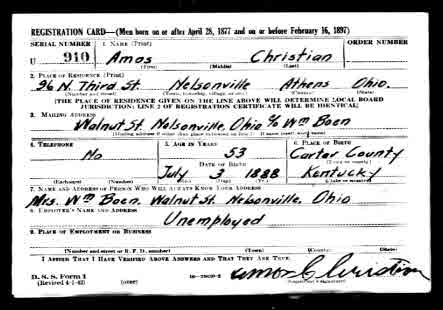 REGISTRATION CARD—(Men born on or after April 28, 1877 and on or before February 16, 1897)
SERIAL NUMBER 1. NAME (Print) ORDER NUMBER
U 910 Amos Christian
(First) (Middle) (Last)
2. PLACE OF RESIDENCE (Print)
96 N. Third St. Nelsonville Athens Ohio.
(Number and street) (Town, township, village, or city) (County) (State)
[THE PLACE OF RESIDENCE GIVEN ON THE LINE ABOVE WILL DETERMINE LOCAL BOARD
JURISDICTION; LINE 2 OF REGISTRATION CERTIFICATE WILL BE IDENTICAL]
3. MAILING ADDRESS
Walnut St. Nelsonville, Ohio c/o Wm Boen
4. TELEPHONE 5. AGE IN YEARS 6. PLACE OF BIRTH
No 53 Carter County
DATE OF BIRTH (Town or county)
July 3 1888 Kentucky
(Exchange) (Number) (Mo.) (Day) (Yr.) (State or country)
7. NAME AND ADDRESS OF PERSON WHO WILL ALWAYS KNOW YOUR ADDRESS
Mrs. Wm Boen. Walnut St. Nelsonville, Ohio
8. EMPLOYER'S NAME AND ADDRESS
Unemployed
9. PLACE OF EMPLOYMENT OR BUSINESS
(Number and street or R. F. D. number) (Town) (County) (State)
I AFFIRM THAT I HAVE VERIFIED ABOVE ANSWERS AND THAT THEY ARE TRUE.
D. S. S. Form 1
(Revised 4-1-42) (over) Amos C Christian
(Registrant's signature)